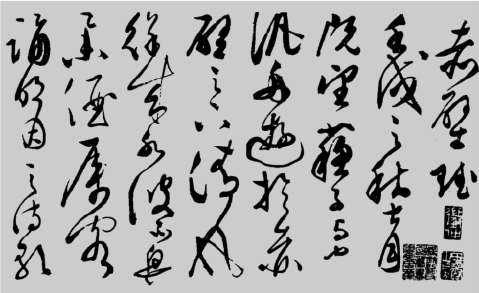 赤壁賦
壬戌之秋七月
既望蘇子与客
汎舟遊於赤
壁之下清風
徐来水波不興
舉酒属客
誦明月之詩歌